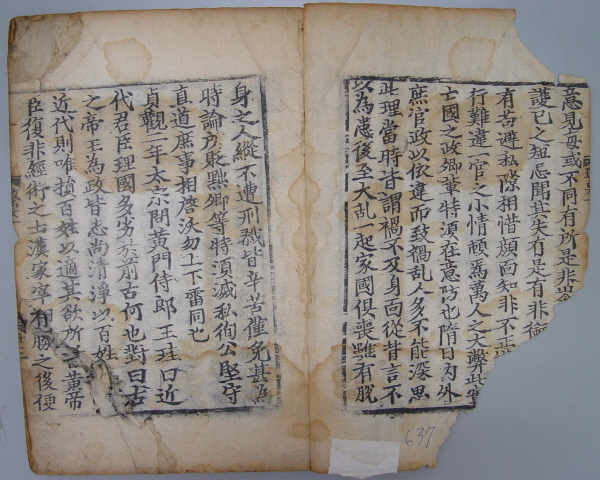 意見每或不同有所是非
護已之短忌聞其失有是有非銜
有苟避私隙相惜顔面知非不正
行難違一官之小情頓爲萬人之大弊此
士國之政卿輩特須在意防也隋日內外
庶官政以依違而致禍乱人多不能深思
此理當時皆謂禍不及身面從背言不
以為患後至大乱一起家國俱喪雖有脫
身之人縱不遭刑戮皆辛苦僅免甚為
時論所貶黜卿等特須滅私徇公堅守
直道庶事相啓沃勿上下雷同也
貞觀二年太宗問黃門侍郎王珪曰近
代君臣理國多劣於前古何也對曰古
之帝王為政皆志尚清淨以百姓
近代則唯損百姓以適其欲所
臣復非經術之士漢家宰
637